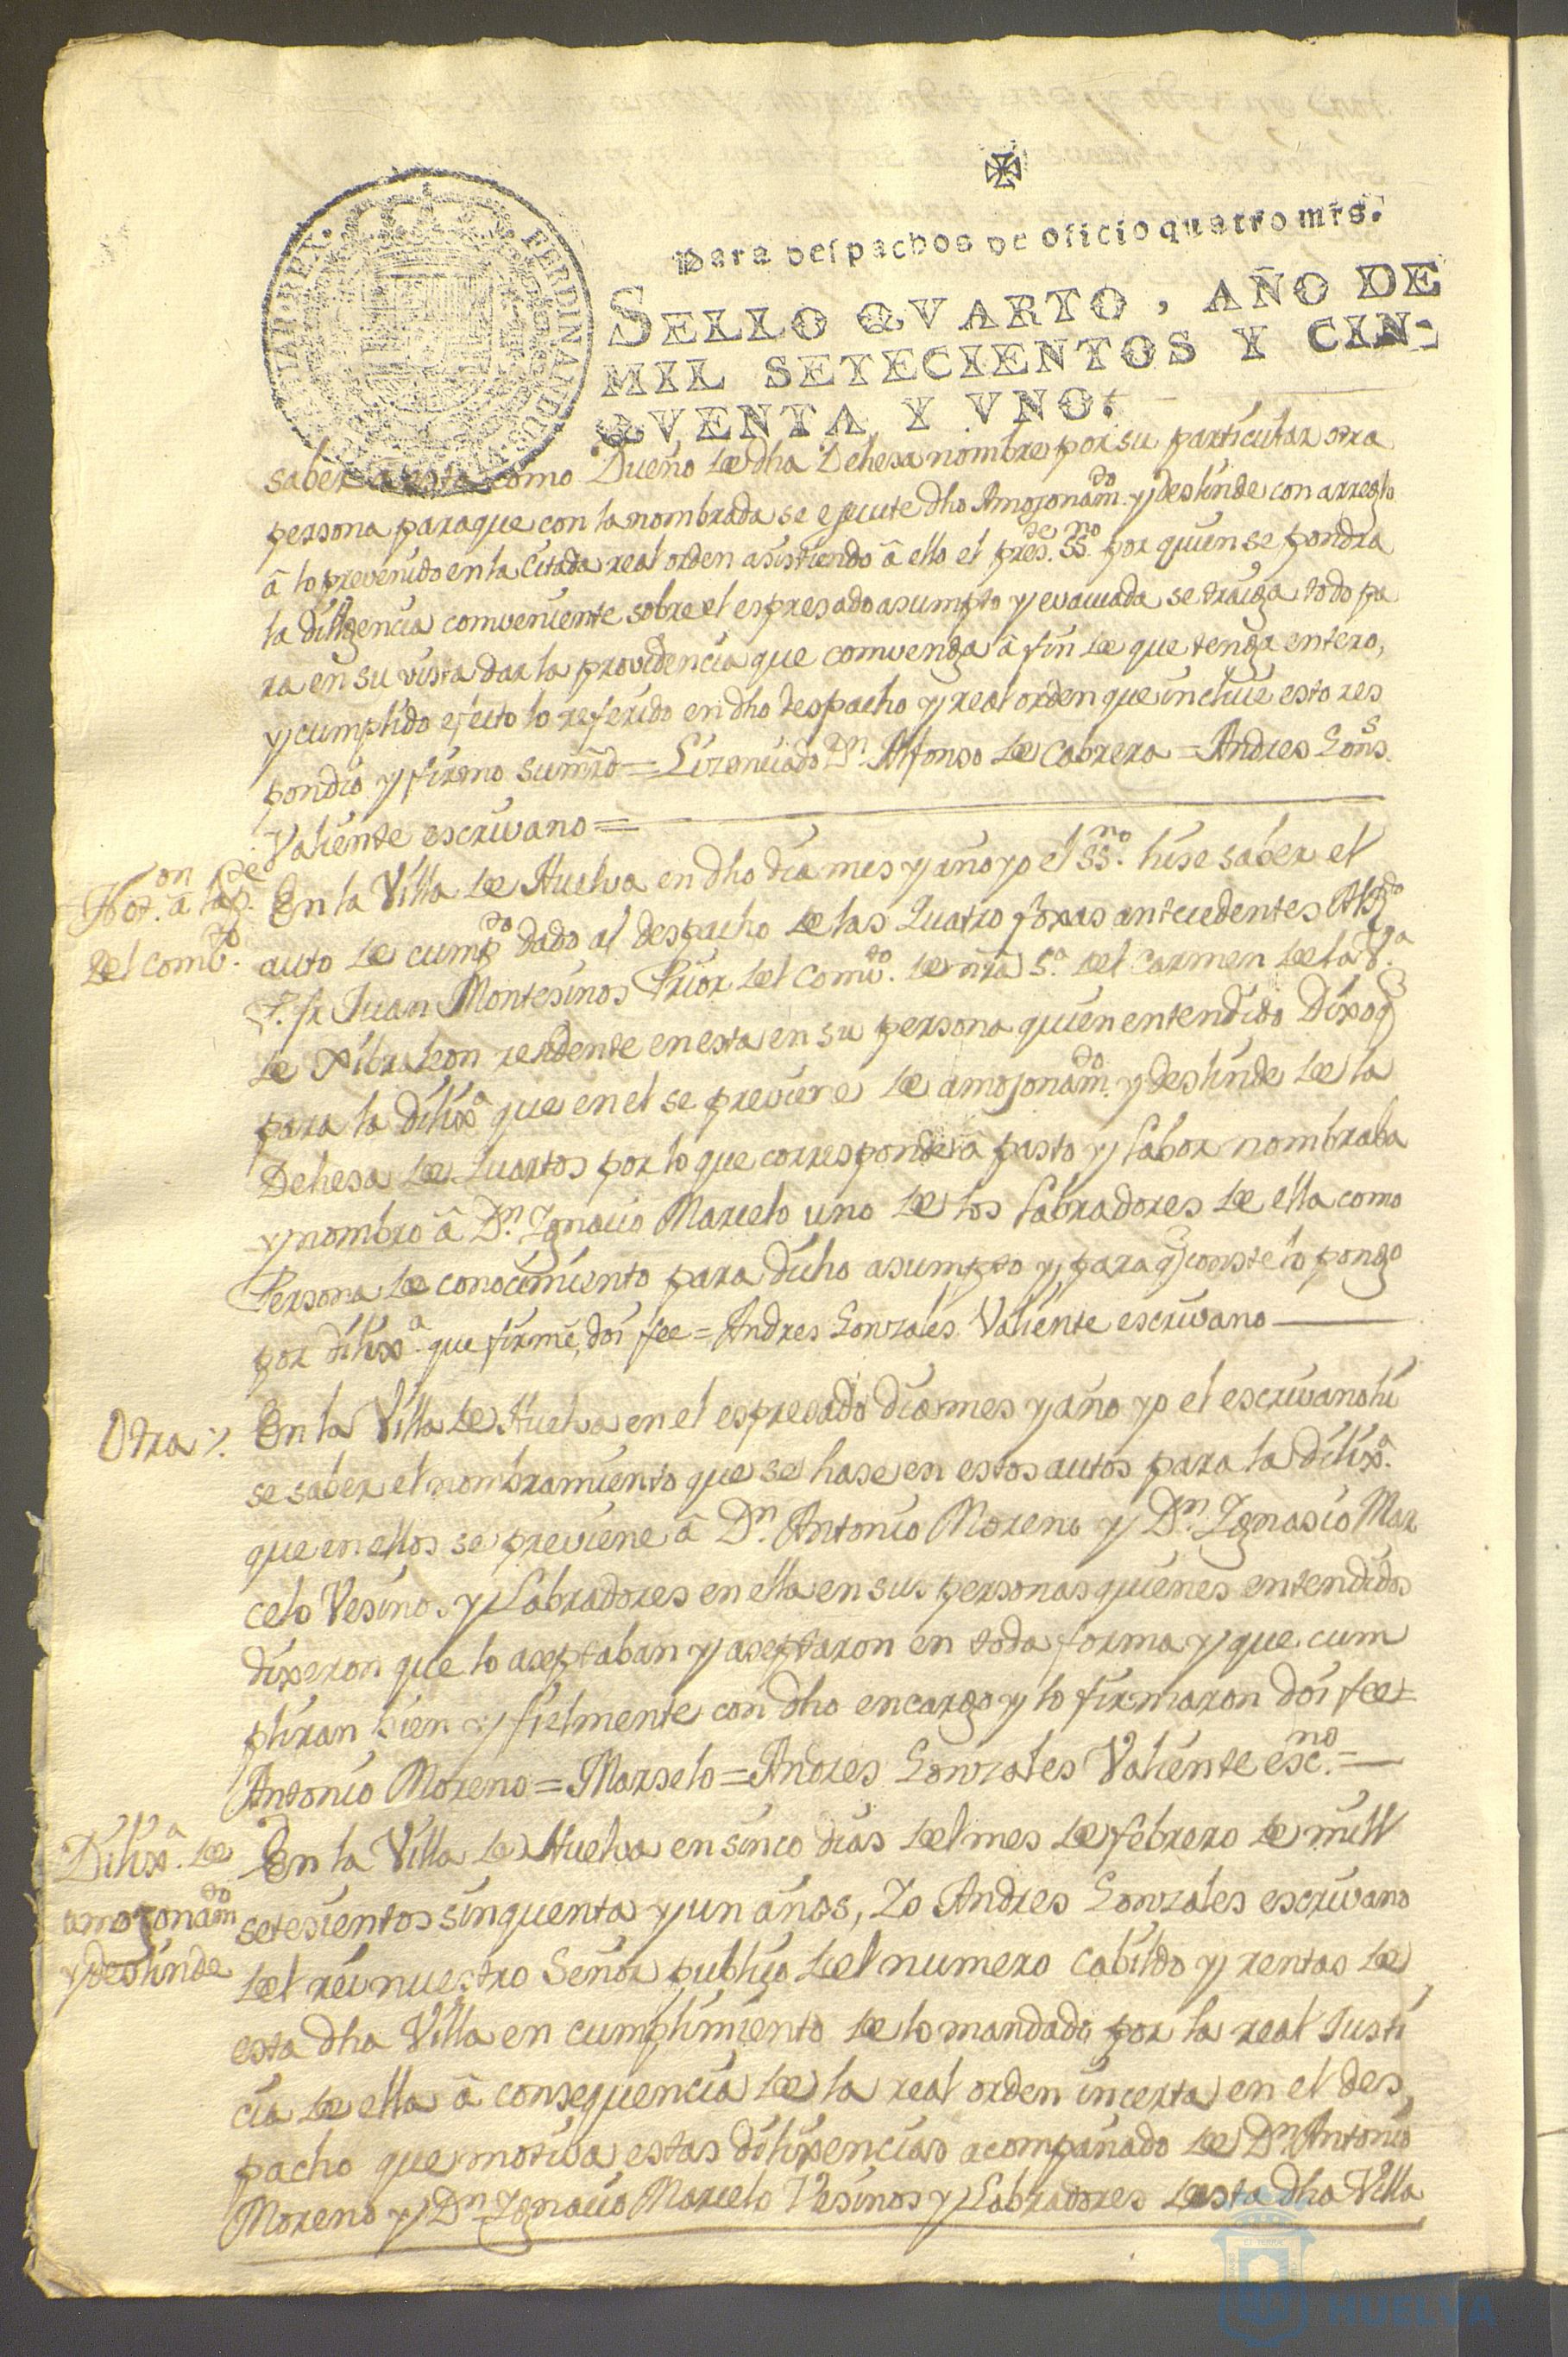 Para despachos de oficio quatro mrs.
SELLO QVARTO, AÑO DE
MIL SETECIENTOS Y CIN-
QVENTA Y VNO.
FERDINANDUS
REX
saber a esta como Dueño de dha Dehesa nombre por su particular otra
persona para que con la nombrada se ejecute dho Amojonamdo. y deslinde con arreglo
â lo prevenido en la citada real orden asistiendo â ello el preste. SSno. por quien se pondra
la dilligencia comveniente sobre el espresado asumpto y evacuada se traiga todo pa
ra en su vista dar la providencia que comvenga â fin de que tenga entero,
y cumplido efecto lo referido en dho despacho y real orden que incluie esto res
pondio y firmo su mrd = Lizenciado Dn. Alfonso de Cabrera = Andres Gons.
Valiente escrivano =
Noton. a la pte
del combto.
En la Villa de Huelva en dho dia mes y año yo el SSno. hise saber el
auto de cumpto dado al despacho de las quatro foxas antecedentes Al Rdo
P. fr Juan Montesinos Prior del Comto. de nra Sa. del Carmen de la Va.
de Xibraleon residente en esta en su persona quien entendido Dixo q
para la dilixa que en el se previene de amojonamdo. y deslinde de la
Dehesa de quartos por lo que corresponde â pasto y labor nombraba
y nombro â Dn. Ygnacio Marcelo uno de los Labradores de ella como
Persona de conocimiento para dicho asumpto y para q conste lo pongo
por dilixa. que firmé, doi fee = Andres Gonzales Valiente escrivano
Otra
En la Villa de Huelva en el espresado dia mes y año yo el escrivano hi
se saber el nombramiento que se hase en estos autos para la dilixa.
que en ellos se previene â Dn. Antonio Moreno y Dn. Ygnasio Mar
celo Vesinos y Labradores en ella en sus personas quienes entendidos
dixeron que lo aseptaban y aseptaron en toda forma y que cum
pliran bien y fielmente con dho encargo y lo firmaron doi fee =
Antonio Moreno = Marselo = Andres Gonzales Valiente escno. =
Dilixa. de
amojonamdo
y deslinde
En la Villa de Huelva en sinco dias del mes de febrero de mill
setesientos sinquenta y un años, Yo Andres Gonzales escrivano
del rei nuestro Señor publico del numero cabildo y rentas de
esta dha Villa en cumplimiento de lo mandado por la real Justi
cia de ella â consequencia de la real orden incerta en el des
pacho que motiva estas dilixencias acompañado de Dn Antonio
Moreno y Dn Ygnacio Marcelo Vesinos y Labradores desta dha Villa
HUELVA